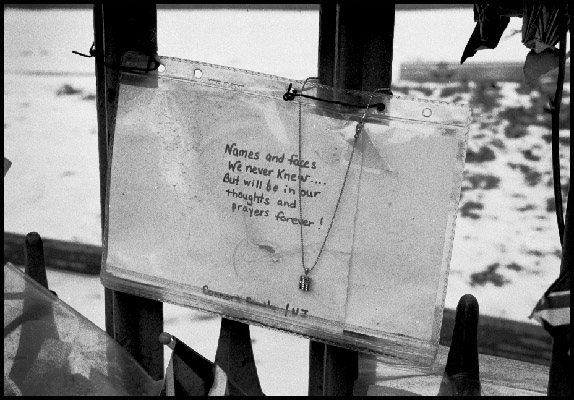 Names and faces
We never knew....
But will be in our
thoughts and
prayers forever!
Family / NJ